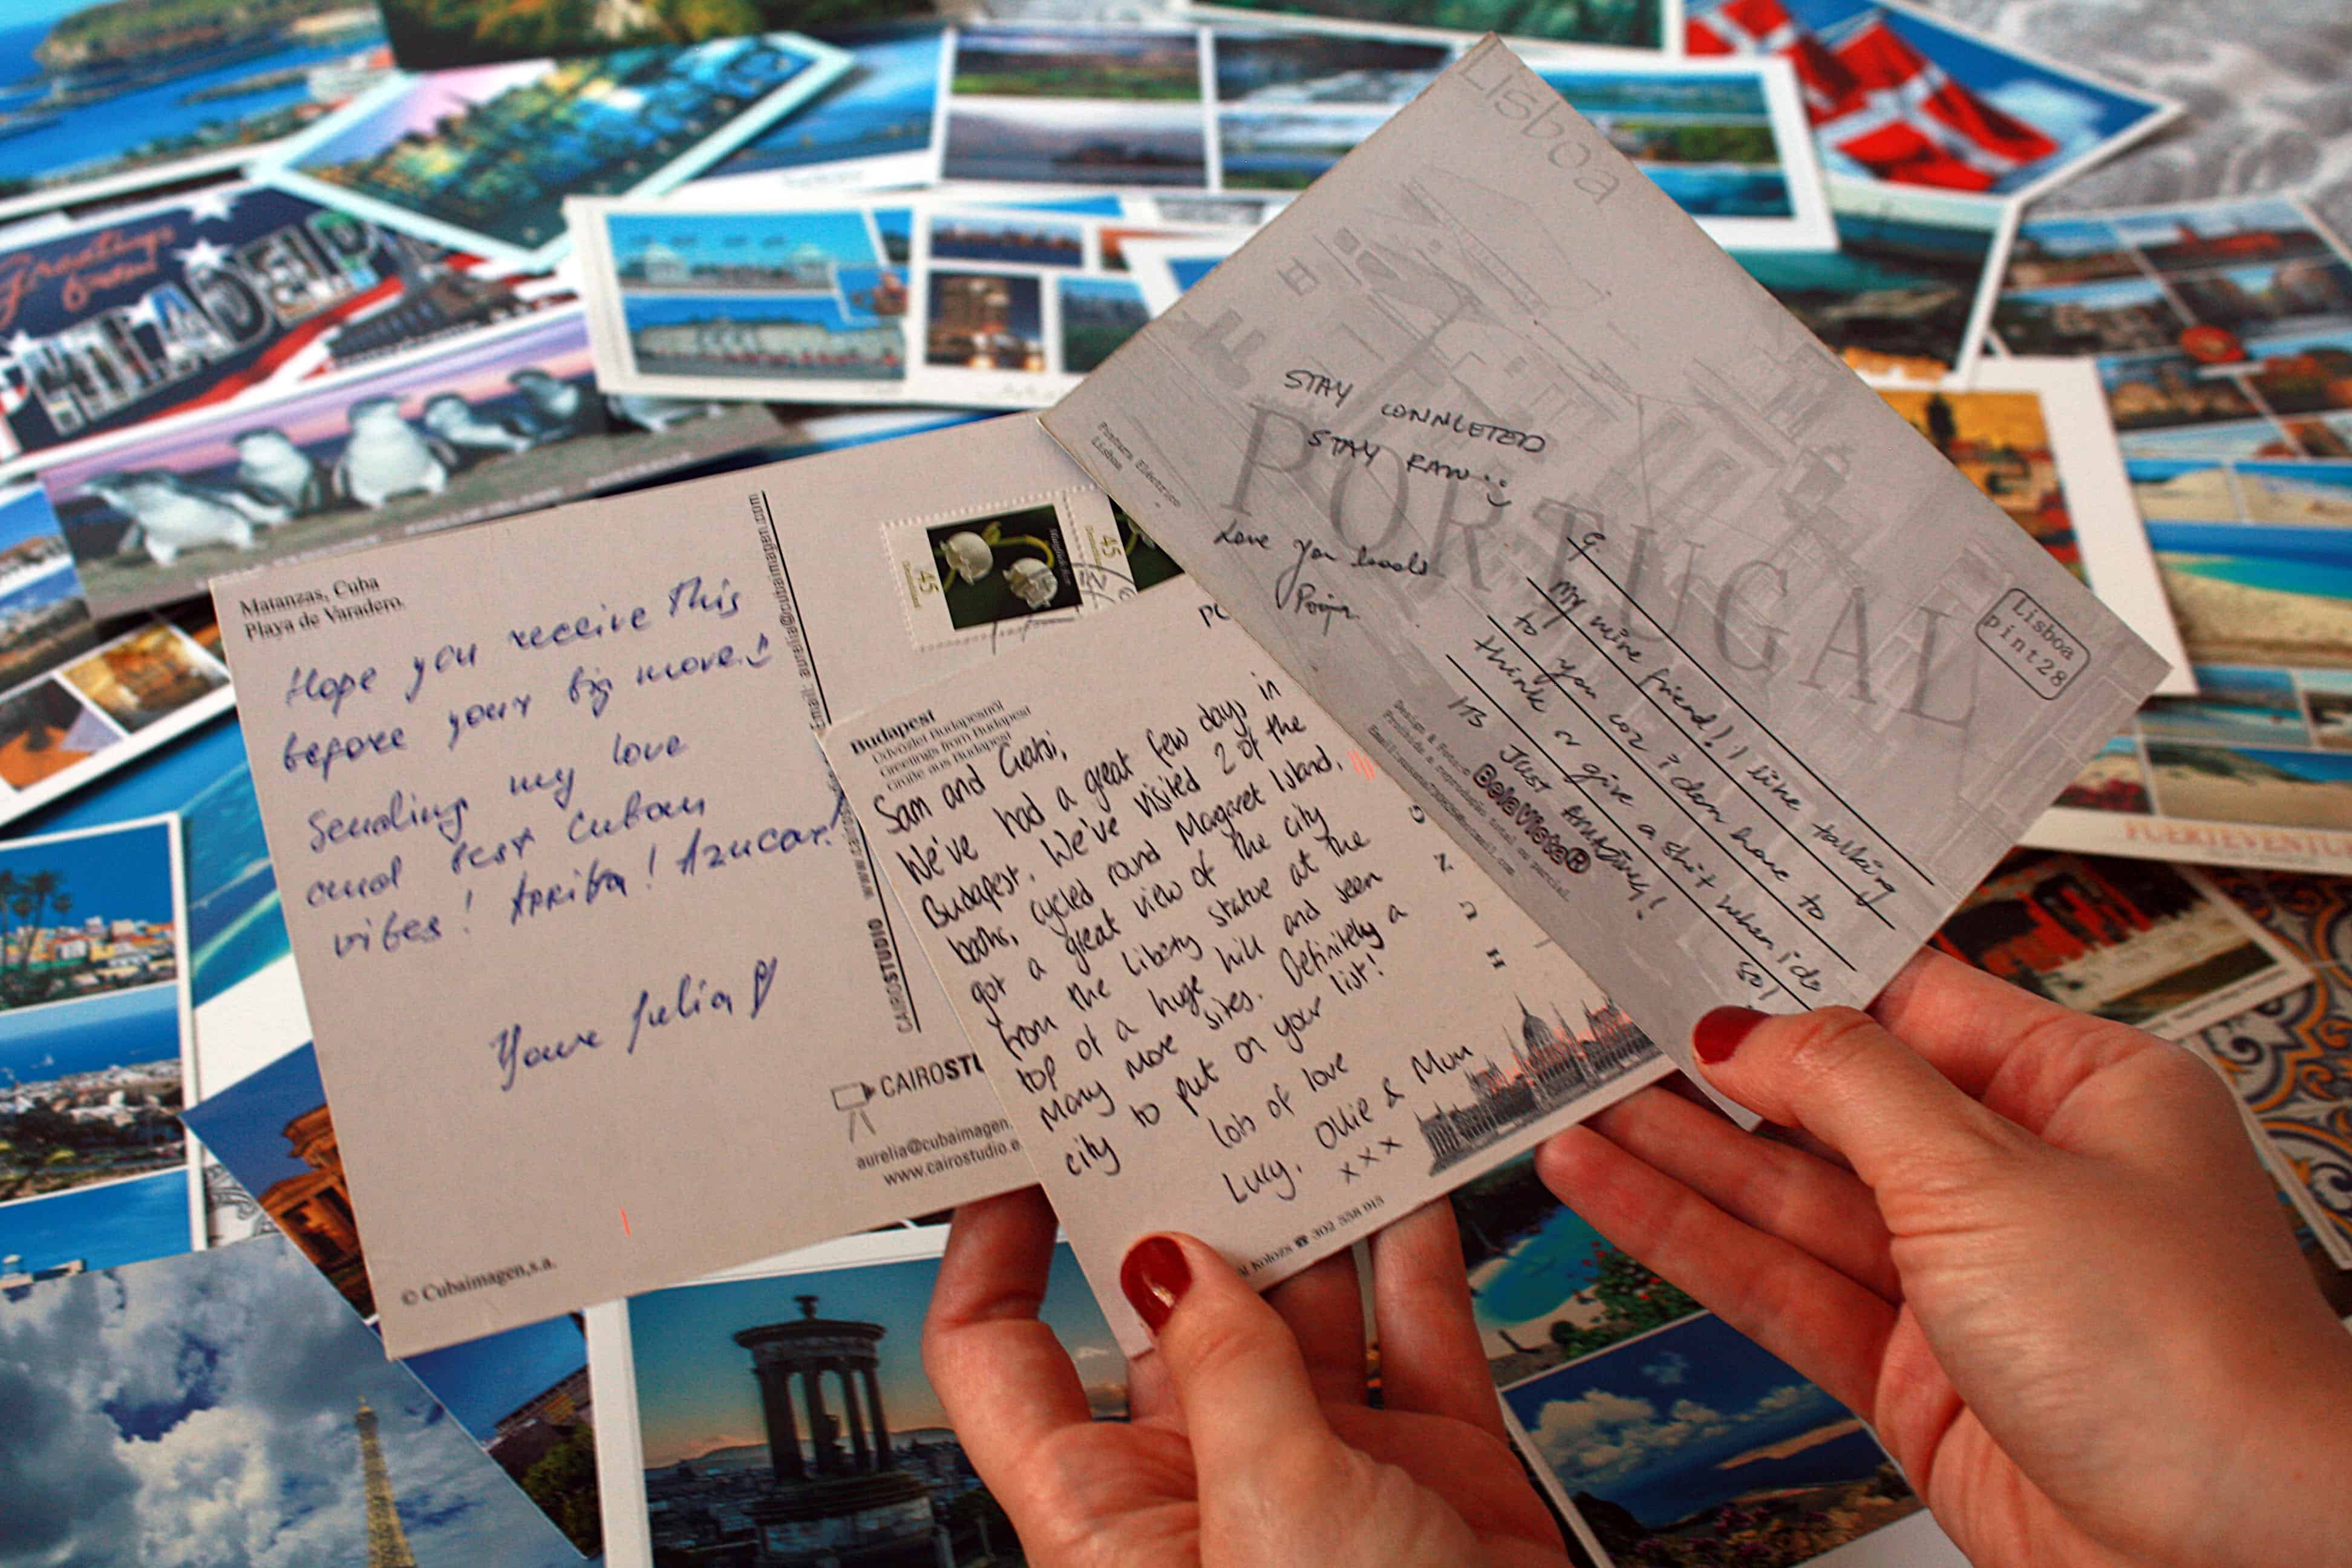 Greetings
from
PHILADELP
Matanzas, Cuba
Playa de Varadero.
Hope you receive this
before your big move.
Sending my love
and best Cuban
vibes! Arriba! Azucar!
Your Julia
© Cubaimagen,s.a.
Email: aurelia@cubaimagen.com
CAIROSTUDIO
45
45
CAIROSTU
aurelia@cubaimagen.
www.cairostudio.e
Budapest
Üdvözlet Budapestről
Greetings from Budapest
Grüße aus Budapest
Sam and Grahi,
We've had a great few days in
Budapest. We've visited 2 of the
baths, cycled round Margaret Island,
got a great view of the city
from the Liberty statue at the
top of a huge hill and seen
many more sites. Definitely a
city to put on your list!
Lots of love
Lucy, Ollie & Mum
x x x
302 558 915
H U N G
Lisboa
PORTUGAL
Lisboa
STAY CONNECTED
STAY RAW..
Love you loads
Pooja
G.
My wine friend! I like talking
to you coz i don have to
think or give a shit when i do
so!
ITS JUST AMAZING!
BelaVista®
Lisboa
pint28
FUERTEVENTU